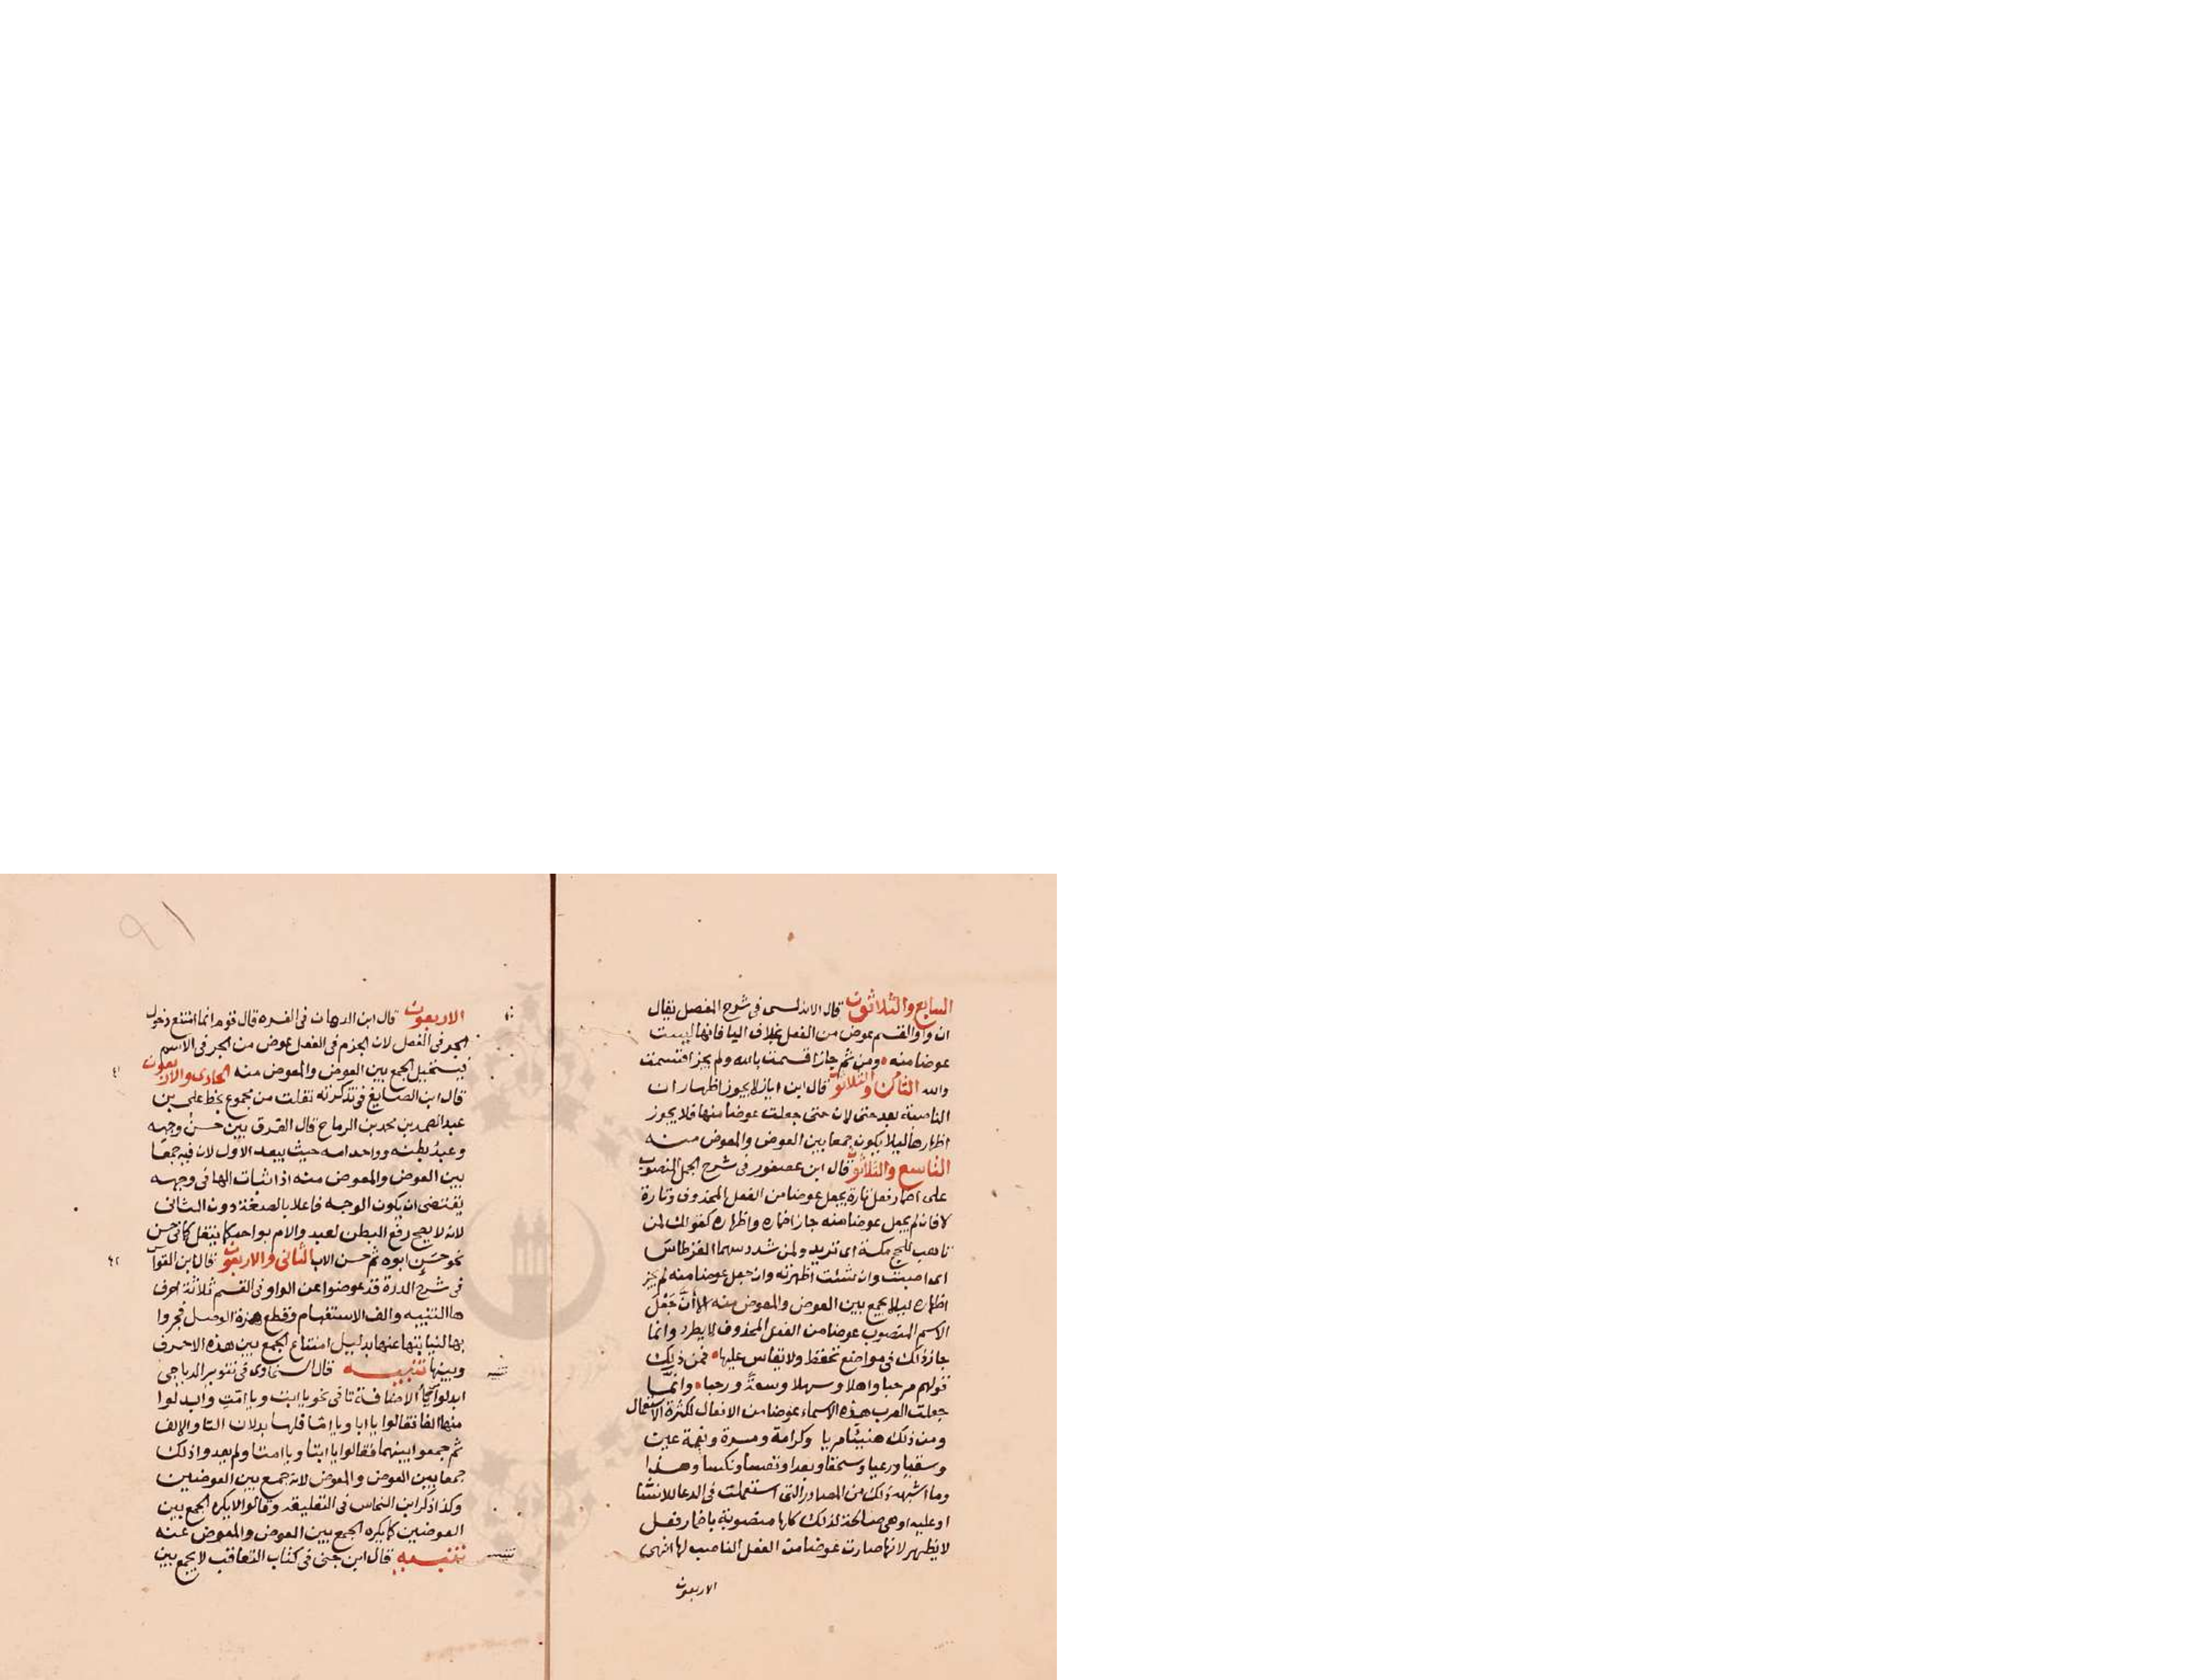 السابع والثلاثون قال الاندلسى فى شرح المفصل يقال
ان واو القسم عوض من الفعل بخلاف اليا فانها ليست
عوضا منه ومن ثم جاز اقسمت بالله ولم يجز اقسمت
والله الثامن والثلاثون قال ابن اياز لا يجوز اظهار ان
الناصبة بعد حتى لان حتى جعلت عوضا منها فلا يجوز
اظهارها ليلا يكون جمعا بين العوض والمعوض منه
التاسع والثلاثون قال ابن عصفور فى شرح الجمل المنصوب
على اضمار فعل تارة يجعل عوضا من الفعل المحذوف وتارة
لا فان لم يجعل عوضا منه جاز اضماره واظهاره كقولك لمن
تاهب للحج مكة اى تريد ولمن شدد سهما القرطاس
اى اصبت وان شئت اظهرته وان جعل عوضا منه لم يجز
اظهاره ليلا يجمع بين العوض والمعوض منه الا أنّ جَعْلَ
الاسم المنصوب عوضا من الفعل المحذوف لا يطرد وانما
جاز ذلك فى مواضع تحفظ ولا يقاس عليها فمن ذلك
قولهم مرحبا واهلا وسهلا وسعة ورحبا وانمّا
جعلت العرب هذه الاسماء عوضا من الافعال لكثرة الاستعمال
ومن ذلك هنيئا مريا وكرامة ومسرة ونعمة عين
وسقيا ورعيا وسحقا وبعدا وتعسا ونكسا وهذا
وما اشبهه ذلك من المصادر التى استعملت فى الدعا للانسان
او عليه او هى صالحة لذلك كلها منصوبة باضمار فعل
لا يظهر لانها صارت عوضا من الفعل الناصب لها انتهى
الاربعون
٩١
الاربعون قال ابن الدهان فى الغره قال قوم انما امتنع دخول
الجر فى الفعل لان الجزم فى الفعل عوض من الجر فى الاسم
فيستحيل الجمع بين العوض والمعوض منه الحادى والاربعون
٤١
قال ابن الصايغ فى تذكرته نقلت من مجموع بخط على بن
عبد الصمد بن محمد بن الرماح قال الفرق بين حسن وجهه
وعبد بطنه وواحد امه حيث يبعد الاول لان فيه جمعا
بين العوض والمعوض منه اذ اثبات الها فى وجهه
يقتضى ان يكون الوجه فاعلا بالصفة دون الثانى
لانه لا يصح رفع البطن لعبد والام بواحد كما ينتقل كما فى حسن
نحو حسن ابوه ثم حسن الاب الثانى والاربعون قال ابن القواس
٤٢
فى شرح الدرة قد عوضوا عن الواو فى القسم ثلاثة احرف
ها التنبيه والف الاستفهام وقطع همزة الوصل فجروا
بها لنيابتها عنها بدليل امتناع الجمع بين هذه الاحرف
وبينها تنبيه قال السخاوى فى تنوير الدياجى
تنبيه
ابدلوا يا الاضافة تا فى نحو يا ابت ويا امت وابدلوا
منها الفا فقالوا يا ابا ويا اما فلها بدلان التا والالف
ثم جمعوا بينهما فقالوا يا ابتا ويا امتا ولم يعدوا ذلك
جمعا بين العوض والمعوض لانه جمع بين العوضين
وكذا ذكر ابن النحاس فى التعليقه وقالوا لا يكره الجمع بين
العوضين كما يكره الجمع بين العوض والمعوض عنه
تنبيه قال ابن جنى فى كتاب التعاقب لا يجمع بين
تنبيه